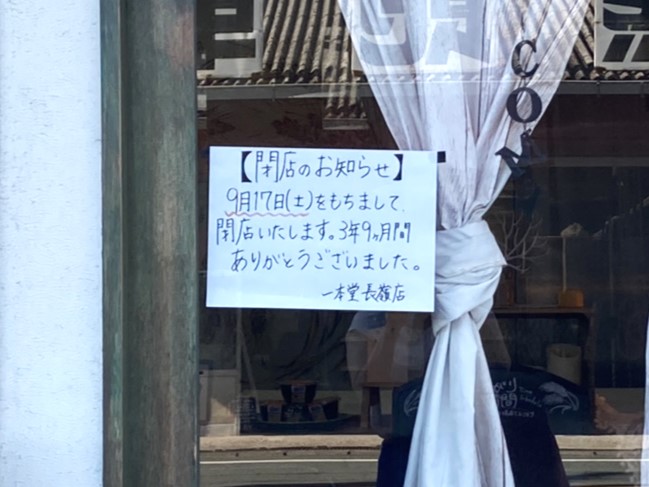 【閉店のお知らせ】
9月17日(土)をもちまして、
閉店いたします。3年9ヶ月間
ありがとうございました。
一本堂 長嶺店
COM